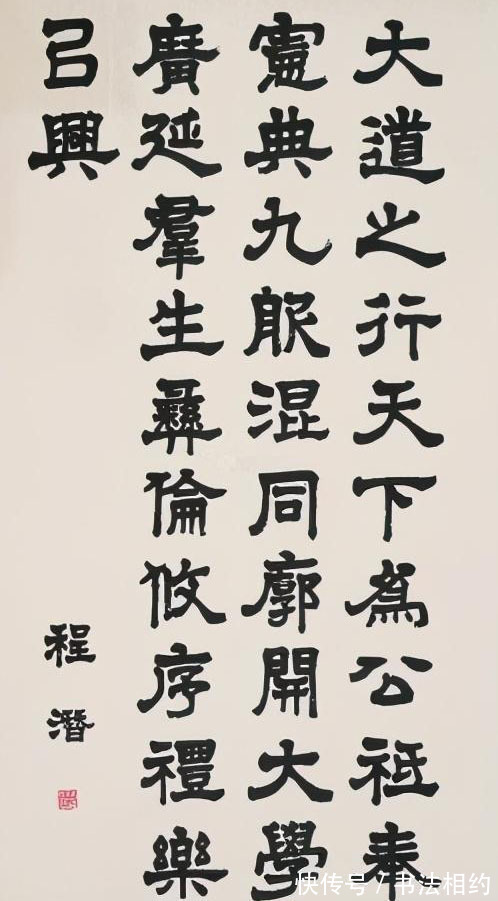 大道之行天下為公祗奉
憲典九服混同廓開大學
廣延羣生彝倫攸序禮樂
㠯興
程潛
快传号 / 书法相约